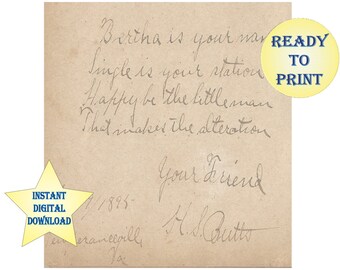 Bertha is your nam
Single is your station
Happy be the little man
That makes the alteration
Your Friend
1895
H. S. Butts
Va
READY
TO
PRINT
INSTANT
DIGITAL
DOWNLOAD